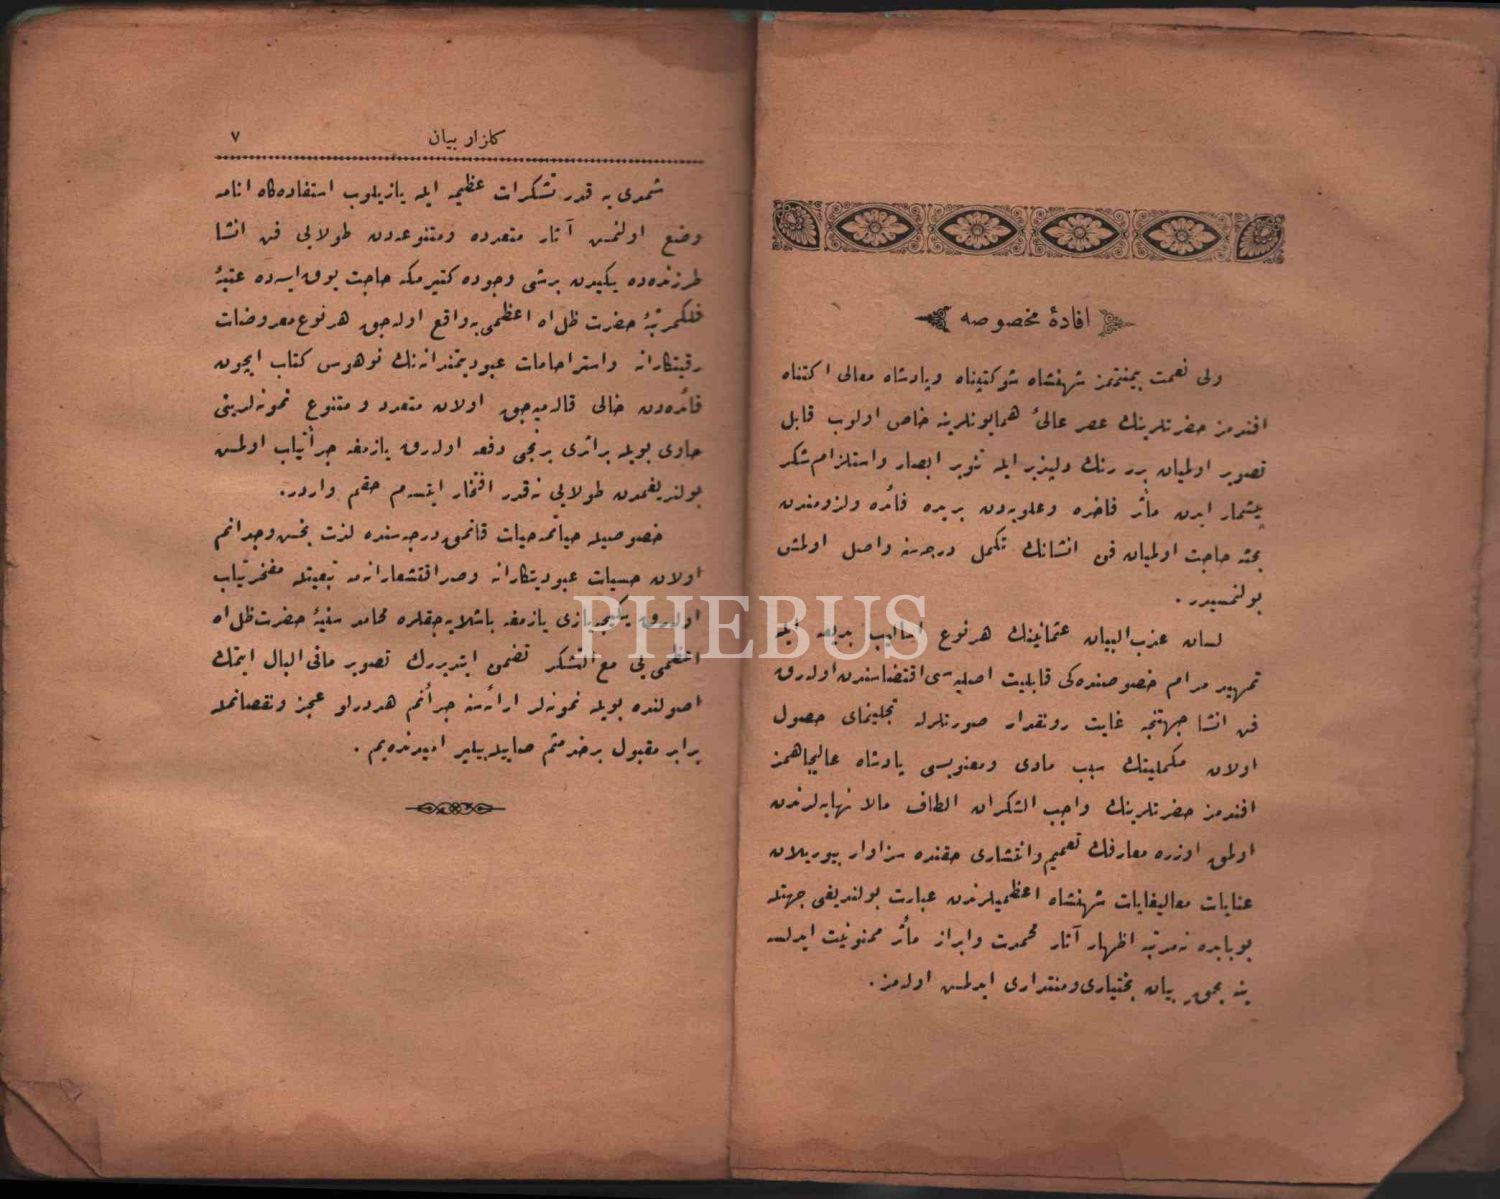 افادهٔ مخصوصه
ولی نعمت بیمنتمز شهنشاه شوکتپناه و پادشاه معالی اکتناه
افندمز حضرتلرینك عصر عالیٔ همایونلرینه خاص اولوب قابل
تصویر اولمیان بر رنك دلپذیر ایله تنویر ابصار و استلزام شکر
بیشمار ایدن مآثر فاخره و علویه‌دن بریده فائده و لزومندن
بحثه حاجت اولمیان فن انشانك تکمل درجه‌سنه واصل اولمش
بولنمسیدر .
لسان عذب البیان عثمانینك هر نوع اسالیب بدیعه ایله
تمهید مرام خصوصنده‌کی قابلیت اصلیه‌سی اقتضاسندن اوله‌رق
فن انشا جهتنجه غایت رونقدار صورتلرله تجلینمای حصول
اولان مکملیتك سبب مادی و معنویسی پادشاه عالیجاهمز
افندمز حضرتلرینك واجب الشکران الطاف مالا نهایه‌لرندن
اولمق اوزره معارفك تعمیم و انتشاری حقنده سزاوار بیوریلان
عنایات معالیغایات شهنشاه اعظمیلرندن عبارت بولندیغی جهتله
بوبابده نه‌مرتبه اظهار آثار محمدت و ابراز مآثر ممنونیت ایدلسه
ینه بحق بیان بختیاری و منتداری ایدلمش اوله‌مز .
گلزار بیان ٧
شمدی‌یه قدر تشکرات عظیمه ایله یازیلوب استفاده‌کاه انامه
وضع اولنمش آثار متعدده و متنوعه‌دن طولایی فن انشا
طرزنده‌ده یکیدن برشی وجوده کتیرمکه حاجت یوق ایسه‌ده عتبهٔ
فلکمرتبهٔ حضرت ظل اه اعظمی‌یه واقع اوله‌جق هر نوع معروضات
رقیتکارانه و استرحامات عبودیتمندانه‌نك نوهوس کتاب ایچون
فائده‌دن خالی قالمیه‌جق اولان متعدد و متنوع نمونه‌لرینی
حاوی بویله بر اثری برنجی دفعه اوله‌رق یازمغه جرأتیاب اولمش
بولندیغمدن طولایی نه‌قدر افتخار ایتسه‌م حقم واردر.
خصوصیله حیاتمه حیات قاتمق درجه‌سنده لذت بخش وجدانم
اولان حسیات عبودیتکارانه و صداقتشعارانه‌مه تبعیتله مفخرتیاب
اوله‌رق یکیجه یازی یازمغه باشلایه‌جقلره محامد سنیهٔ حضرت ظل اه
اعظمی‌یی مع التشکر تضمن ایتدیره‌رك تصویر مافی البال ایتمك
اصولنده بویله نمونه‌لر ارائه‌سنه جرأتم هردرلو عجز و نقصانمله
برابر مقبول بر خدمتم صاییله‌بیلیر امیدنده‌یم .
PHEBUS